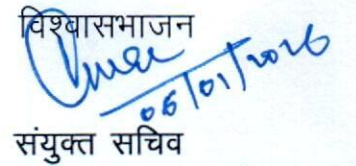 विश्वासभाजन
06/01/2026
संयुक्त सचिव